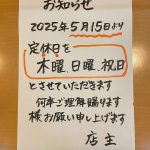 お知らせ
2025年5月15日より
定休日を
木曜、日曜、祝日
とさせていただきます
何卒ご理解賜ります
様お願い申し上げます
店主